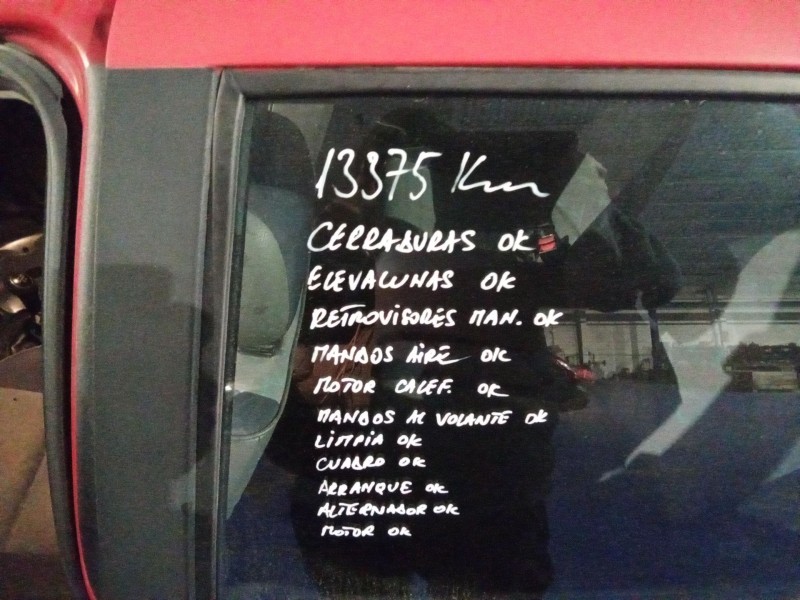 13375 Km
CERRADURAS OK
ELEVALUNAS OK
RETROVISORES MAN. OK
MANDOS AIRE OK
MOTOR CALEF. OK
MANDOS AL VOLANTE OK
LIMPIA OK
CUADRO OK
ARRANQUE OK
ALTERNADOR OK
MOTOR OK